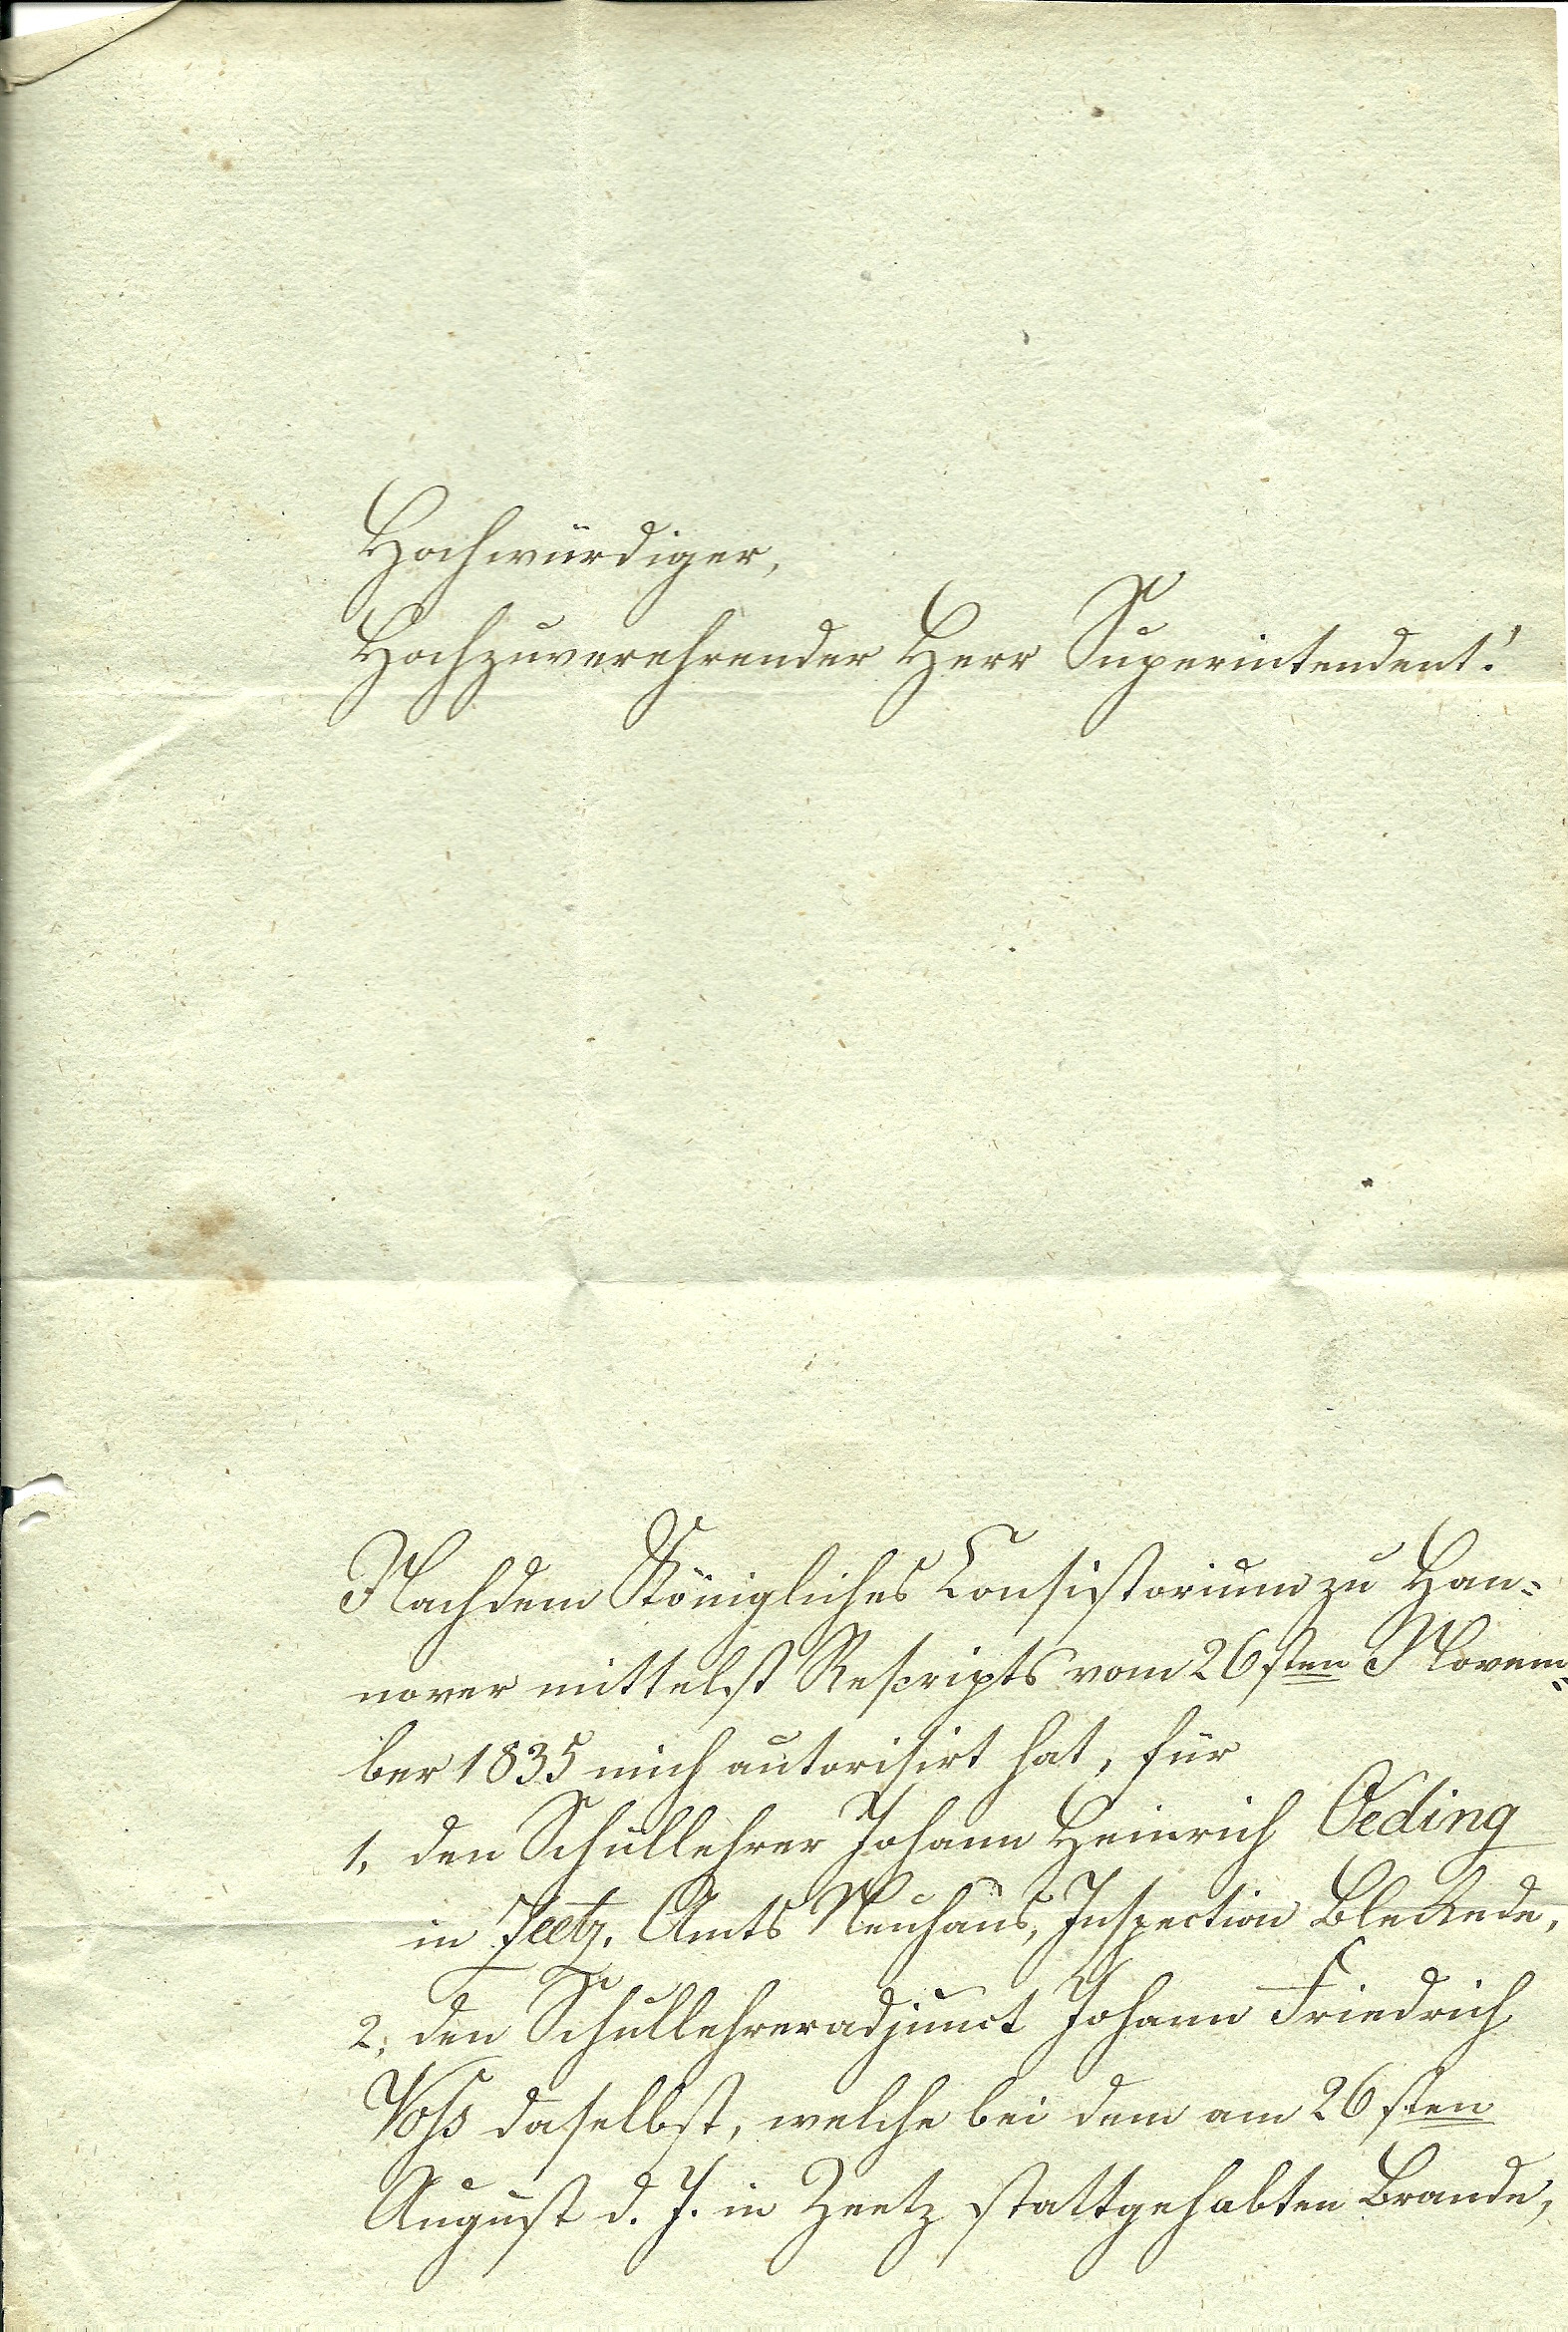 Hochwürdiger,
Hochzuverehrender Herr Superintendent!
Nachdem Königliches Consistorium zu Han-
nover mittelst Rescripts vom 26sten Novem-
ber 1835 mich autorisirt hat, für
1, den Schullehrer Johann Heinrich Oeding
in Zeetz, Amts Neuhaus, Inspection Bleckede,
2, den Schullehreradjunct Johann Friedrich
Voss daselbst, welche bei dem am 26sten
August d. J. in Zeetz stattgehabten Brande,